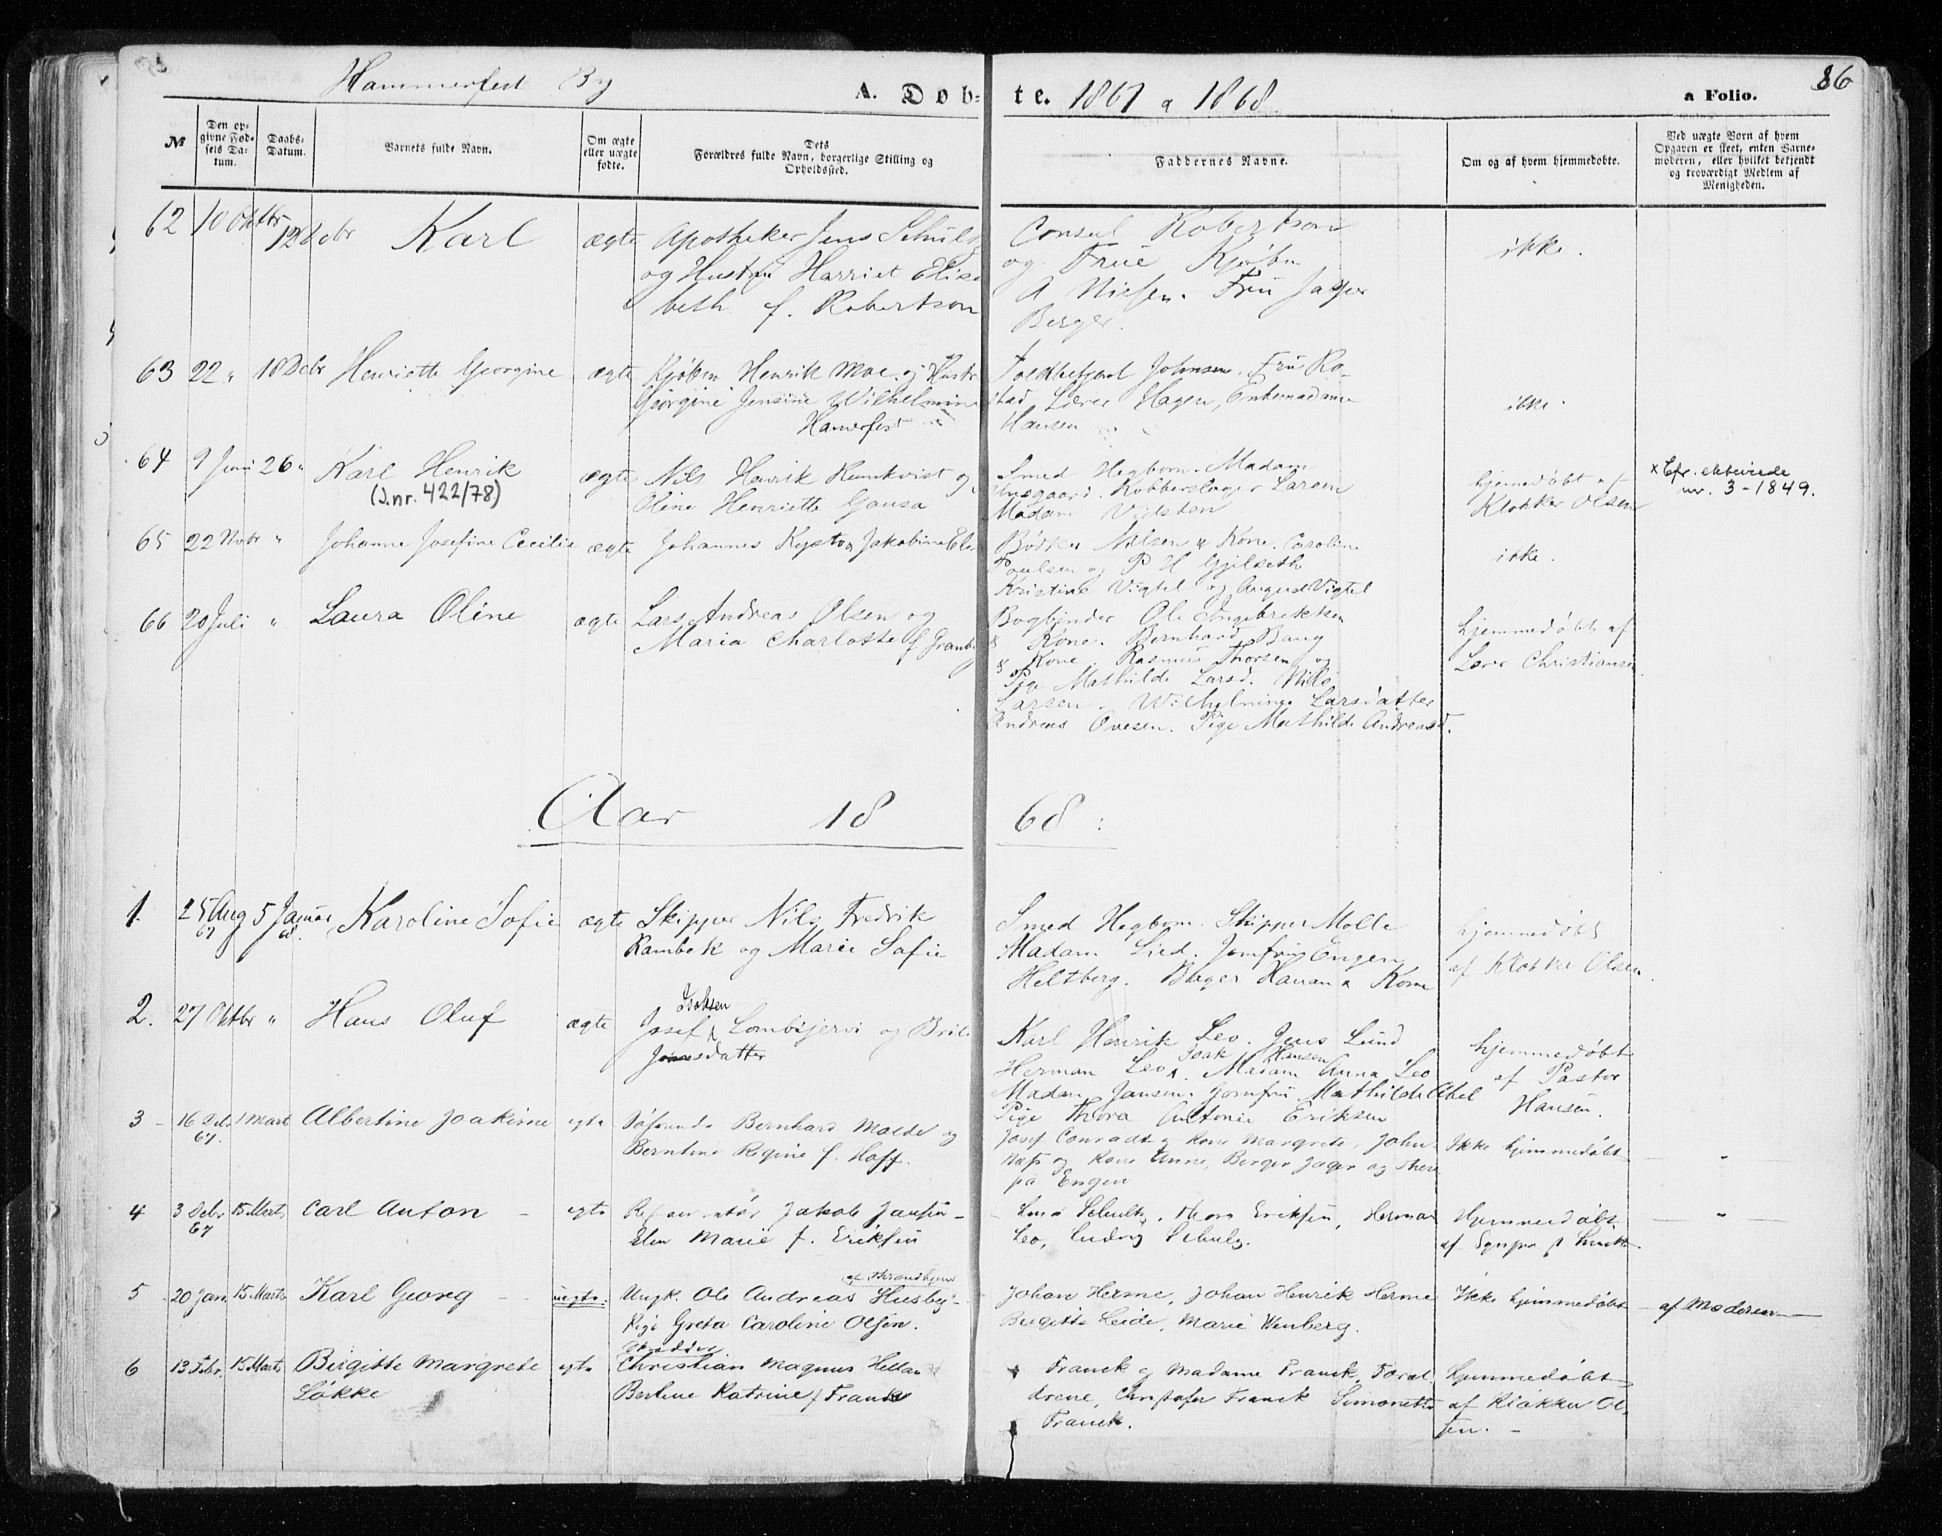 Hammerfest By
A. Døb-
te. 1867 a 1868
a Folio.
86
№
Den op-
givne Fød-
sels Da-
tum.
Daabs-
Datum.
Barnets fulde Navn.
Om ægte
eller uægte
fødte.
Dets
Forældres fulde Navn, borgerlige Stilling og
Opholdssted.
Faddernes Navne.
Om og af hvem hjemmedøbte.
Ved uægte Børn af hvem
Opgaven er skeet, enten Barne-
moderen, eller hvilket bekjendt
og troværdigt Medlem af
Menigheden.
62 10 Oktbr 12 Debr Karl ægte Apotheker Jens Schulz
og Hustru Harriet Elisa
beth f. Robertson
Consul Robertson
og Frue Kjøbm
A Nissen. Fru Jasper
Berger.
ikke.
63 22 " 18 Debr Henriette Georgine ægte Kjøbm Henrik Moe og Hustr
Georgine Jensine Wilhelmine
Hamerfest
Toldbetjent Johnsen. Fru Ro-
stad, Lærer Hagen, Enkemadame
Hansen
ikke.
64 9 Juni 26 " Karl Henrik
(J.nr. 422/78)
ægte Nils Henrik Rumkvist og
Oline Henriette Gausa
Smed Hegbom. Madam
Kobberslager Larsen
Madam Vidsten
hjemmedøbt af
Klokker Olsen
x Cfr. ekteviede
nr. 3-1849.
65 22 Novbr " Johanne Josefine Cecilie ægte Johannes Kysto & Jakobine
Bødker Nilsen & Kone. Caroline
Poulsen og P H Gjilseth
Kristine Vigtel og August Vigtel
ikke.
66 20 Juli " Laura Oline ægte Lars Andreas Olsen og
Maria Charlotte f Granberg
Bogbinder Ole Ingebrektsen
& Kone. Bernhard Bang
& Kone. Rasmus Thorsen og
Pige Mathilde Larsd. Nils
Larsen. Wilhelmine Larsdatter
Andreas Ovesen. Pige Mathilde Andreasd.
hjemmedøbt af
Lærer Christiansen
Aar 18 68:
1. 25 Aug 67 5 Januar 68. Karoline Sofie ægte Skipper Nils Fredrik
Rambek og Marie Sofie
Smed Hegbom. Skipper Molle
Madam Lied. Jomfru Engen
Heltberg. Bager Hanan & Kone
hjemmedøbt
af Klokker Olsen.
2. 27 Oktbr " Hans Oluf ægte Josef Isaksen Lombsjervi og Brita
Jonasdatter
Karl Henrik Leo. Jens Lund
Herman Leo. Isak Hansen Madam Anna Leo
Madam Jansen. Jomfru Mathilde Abel
Pige Thora Antonie Eriksen
hjemmedøbt
af Pastor
Hansen.
3 - 16 Debr 67. 1 Mart Albertine Joakime egte Bernhard Molde og
Berntine Regine f. Hoff.
Josef Conradt og Kone Margrete, John
Næss og Kone Anne, Berger Jæger og There
pa Engen
Ikke hjemmedøbt — " —
4 3 Debr 67 15 Marts Carl Anton - egte Jakob Jansen -
Elen Marie f. Eriksen
Schultz, Thora Eriksen, Herman
Leo, Ludvig Schulz.
Hjemmedøbt
af — " —
5 20 Jan. 15 Marts Karl Georg - uegte: Ungk. Ole Andreas Husby - af Throndhjem
Pige Greta Caroline Olsen.
Johan Herme, Johan Henrik Herme
Birgitte Leide, Marie Wenberg.
Ikke hjemmedøbt - af Moderen -
6 13 Febr. 15 Marts Birgitte Margrete
Løkke
egte Christian Magnus Hellan
Bertine Katrine f Franck
Franck og Madame Franck, Foræl-
drene, Christofer Franck Simonette
Franck.
Hjemmedøbt
af Klokker Ol-
sen. -